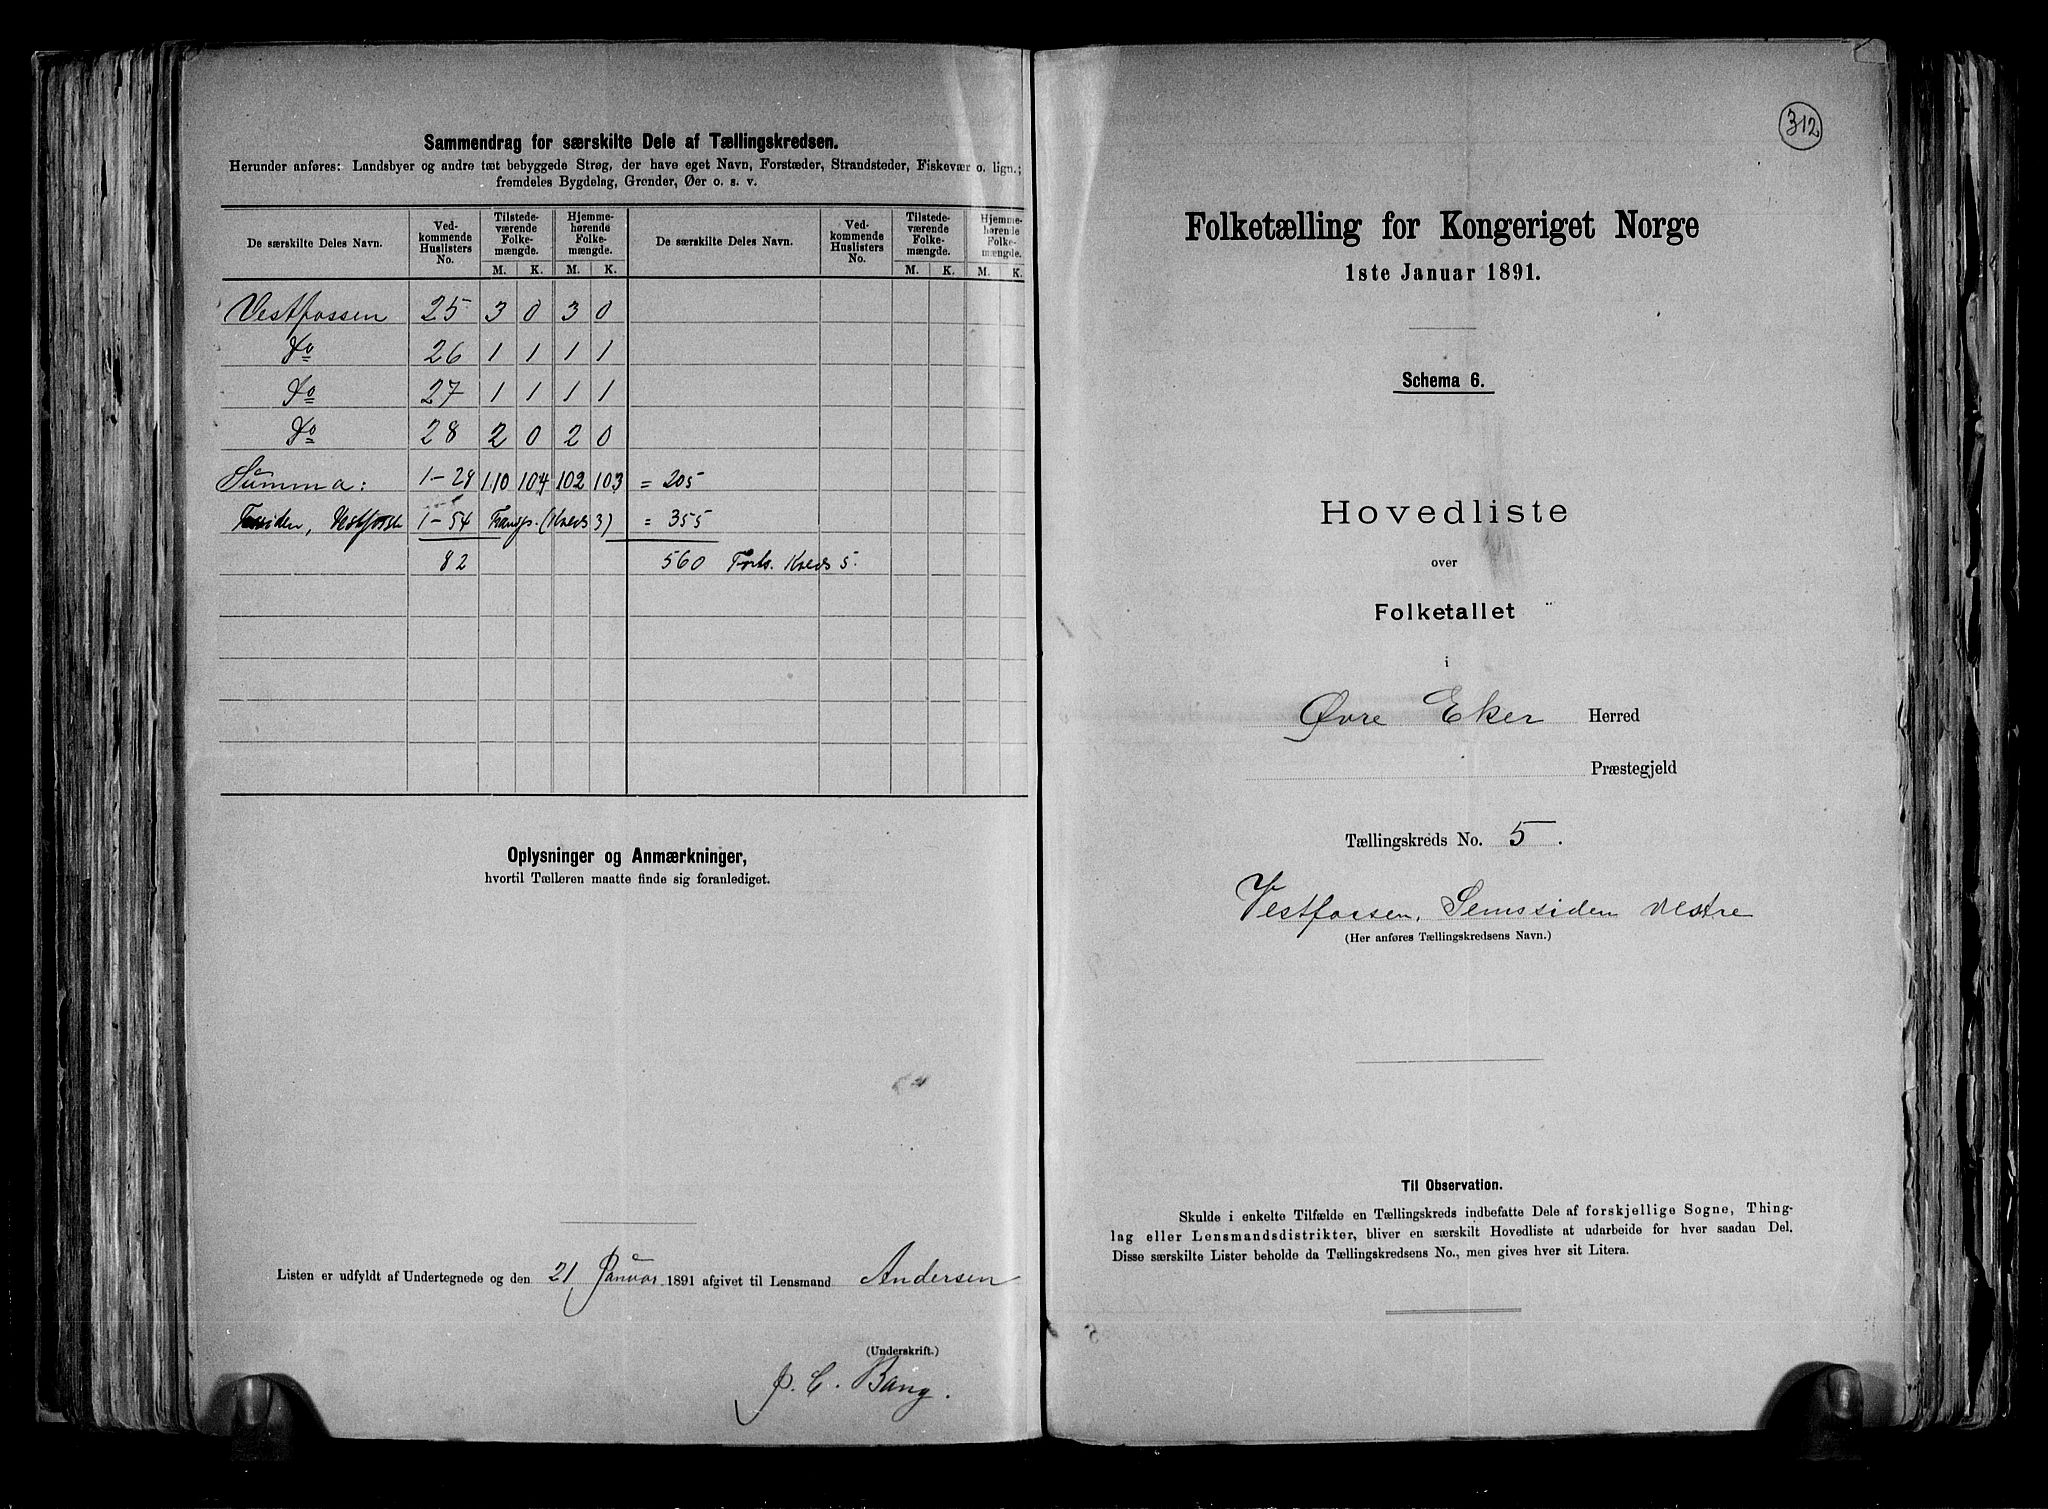 Sammendrag for særskilte Dele af Tællingskredsen.
Herunder anføres: Landsbyer og andre tæt bebyggede Strøg, der have eget Navn, Forstæder, Strandsteder, Fiskevær o. lign.;
fremdeles Bygdelag, Grønder, Øer o. s. v.
De særskilte Deles Navn. Ved-kommende Huslisters No. Tilstede-værende Folke-mængde. Hjemme-hørende Folke-mængde. De særskilte Deles Navn. Ved-kommende Huslisters No. Tilstede-værende Folke-mængde. Hjemme-hørende Folke-mængde.
M. K. M. K. M. K. M. K.
Vestfossen 25 3 0 3 0
Do 26 1 1 1 1
Do 27 1 1 1 1
Do 28 2 0 2 0
Summa: 1-28 110 104 102 103 = 205
1-54 Transp. (Kreds 3) = 355
82 560 Forts. Kreds 5.
Oplysninger og Anmærkninger,
hvortil Tælleren maatte finde sig foranlediget.
Listen er udfyldt af Undertegnede og den 21 Januar 1891 afgivet til Lensmand Andersen
(Underskrift.)
J. C. Bang.
312
Folketælling for Kongeriget Norge
1ste Januar 1891.
Schema 6.
Hovedliste
over
Folketallet
i
Øvre Eker Herred
Præstegjeld
Tællingskreds No. 5.
Vestfossen, Semssiden vestre
(Her anføres Tællingskredsens Navn.)
Til Observation.
Skulde i enkelte Tilfælde en Tællingskreds indbefatte Dele af forskjellige Sogne, Thing-
lag eller Lensmandsdistrikter, bliver en særskilt Hovedliste at udarbeide for hver saadan Del.
Disse særskilte Lister beholde da Tællingskredsens No., men gives hver sit Litera.